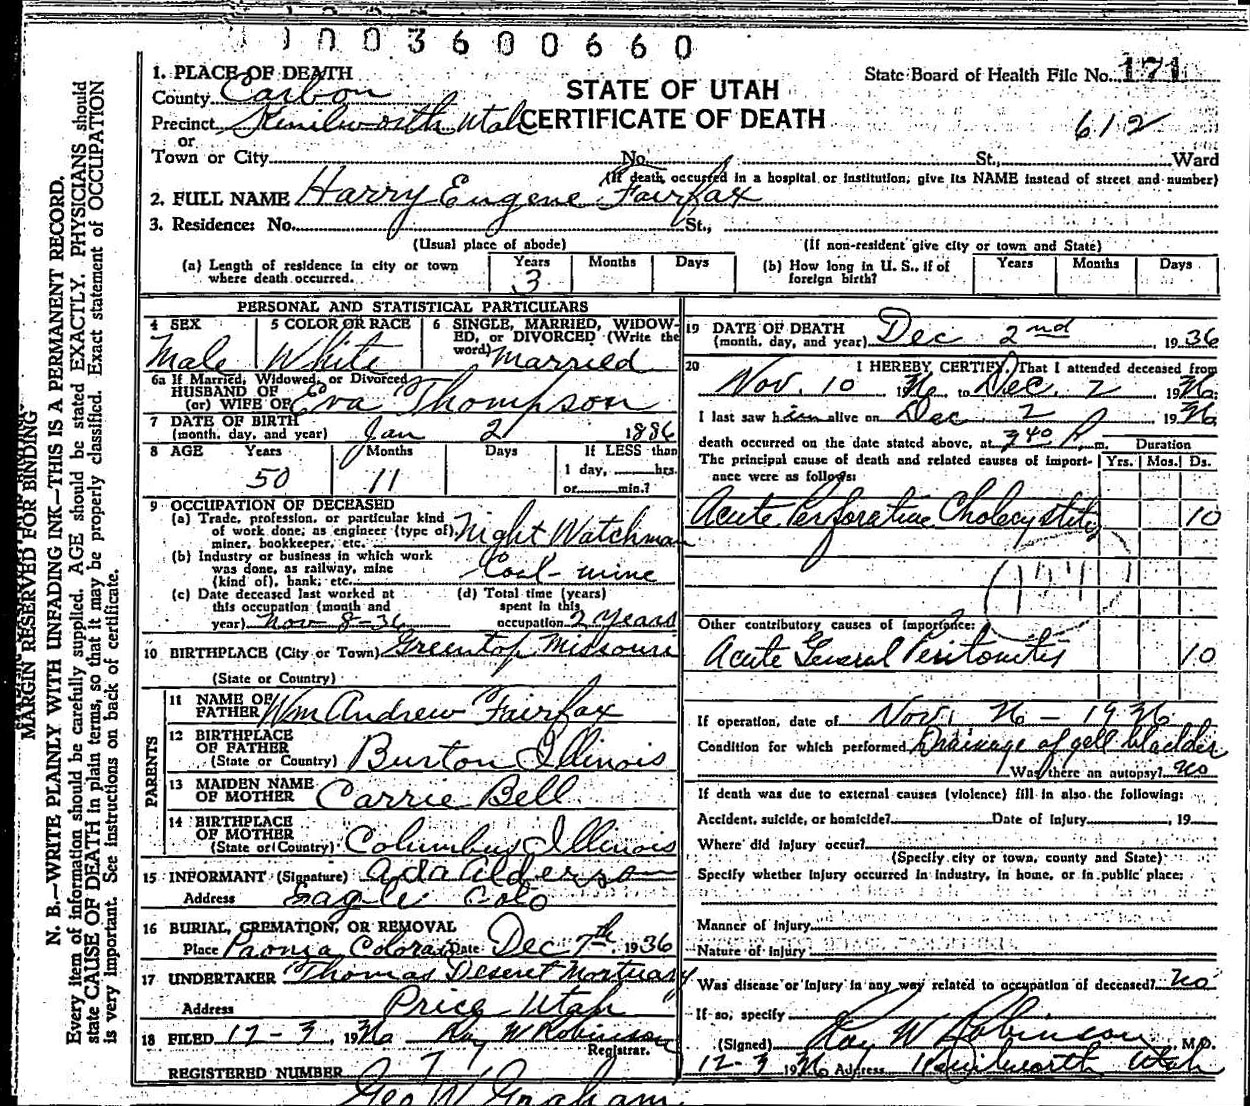 1003600660
1. PLACE OF DEATH
County Carbon
Precinct Kenilworth, Utah
or
Town or City
STATE OF UTAH
CERTIFICATE OF DEATH
State Board of Health File No. 171
612
No. St., Ward
(If death occurred in a hospital or institution, give its NAME instead of street and number)
2. FULL NAME Harry Eugene Fairfax
3. Residence: No. St.,
(Usual place of abode) (If non-resident give city or town and State)
(a) Length of residence in city or town where death occurred. Years 3 Months Days
(b) How long in U. S., if of foreign birth? Years Months Days
PERSONAL AND STATISTICAL PARTICULARS
4 SEX Male
5 COLOR OR RACE White
6 SINGLE, MARRIED, WIDOWED, or DIVORCED (Write the word) Married
6a If Married, Widowed, or Divorced
HUSBAND OF
(or) WIFE OF Eva Thompson
7 DATE OF BIRTH
(month, day, and year) Jan 2 1886
8 AGE Years 50 Months 11 Days If LESS than 1 day, hrs. or min.?
9 OCCUPATION OF DECEASED
(a) Trade, profession, or particular kind of work done, as engineer (type of), miner, bookkeeper, etc. Night Watchman
(b) Industry or business in which work was done, as railway, mine (kind of), bank, etc. Coal-mine
(c) Date deceased last worked at this occupation (month and year) Nov 8-36
(d) Total time (years) spent in this occupation 2 years
10 BIRTHPLACE (City or Town) Greentop Missouri
(State or Country)
PARENTS
11 NAME OF FATHER Wm Andrew Fairfax
12 BIRTHPLACE OF FATHER
(State or Country) Burton Illinois
13 MAIDEN NAME OF MOTHER Carrie Bell
14 BIRTHPLACE OF MOTHER
(State or Country) Columbus Illinois
15 INFORMANT (Signature) Ada Alderson
Address Eagle Colo
16 BURIAL, CREMATION, OR REMOVAL
Place Paonia Colorado Date Dec 7th 1936
17 UNDERTAKER Thomas Deseret Mortuary
Address Price Utah
18 FILED 12-3 1936 Ray W Robinson
Registrar.
REGISTERED NUMBER
Geo W Graham
19 DATE OF DEATH
(month, day, and year) Dec 2nd, 1936
20 I HEREBY CERTIFY, That I attended deceased from
Nov. 10 36 to Dec. 2, 1936
I last saw him alive on Dec 2, 1936
death occurred on the date stated above, at 3 40 P m.
Duration
The principal cause of death and related causes of importance were as follows: Yrs. Mos. Ds.
Acute Perforative Cholecystitis 10
Other contributory causes of importance:
Acute General Peritonitis 10
If operation, date of Nov. 26-1936
Condition for which performed Drainage of gall bladder
Was there an autopsy? no
If death was due to external causes (violence) fill in also the following:
Accident, suicide, or homicide? Date of Injury, 19
Where did Injury occur?
(Specify city or town, county and State)
Specify whether Injury occurred in Industry, in home, or in public place:
Manner of Injury
Nature of Injury
Was disease or injury in any way related to occupation of deceased? no
If so, specify
(Signed) Ray W Robinson, M.D.
12-3 1936 Address Kenilworth Utah
MARGIN RESERVED FOR BINDING
N. B.—WRITE PLAINLY WITH UNFADING INK—THIS IS A PERMANENT RECORD.
Every item of information should be carefully supplied. AGE should be stated EXACTLY. PHYSICIANS should
state CAUSE OF DEATH in plain terms, so that it may be properly classified. Exact statement of OCCUPATION
is very important. See instructions on back of certificate.